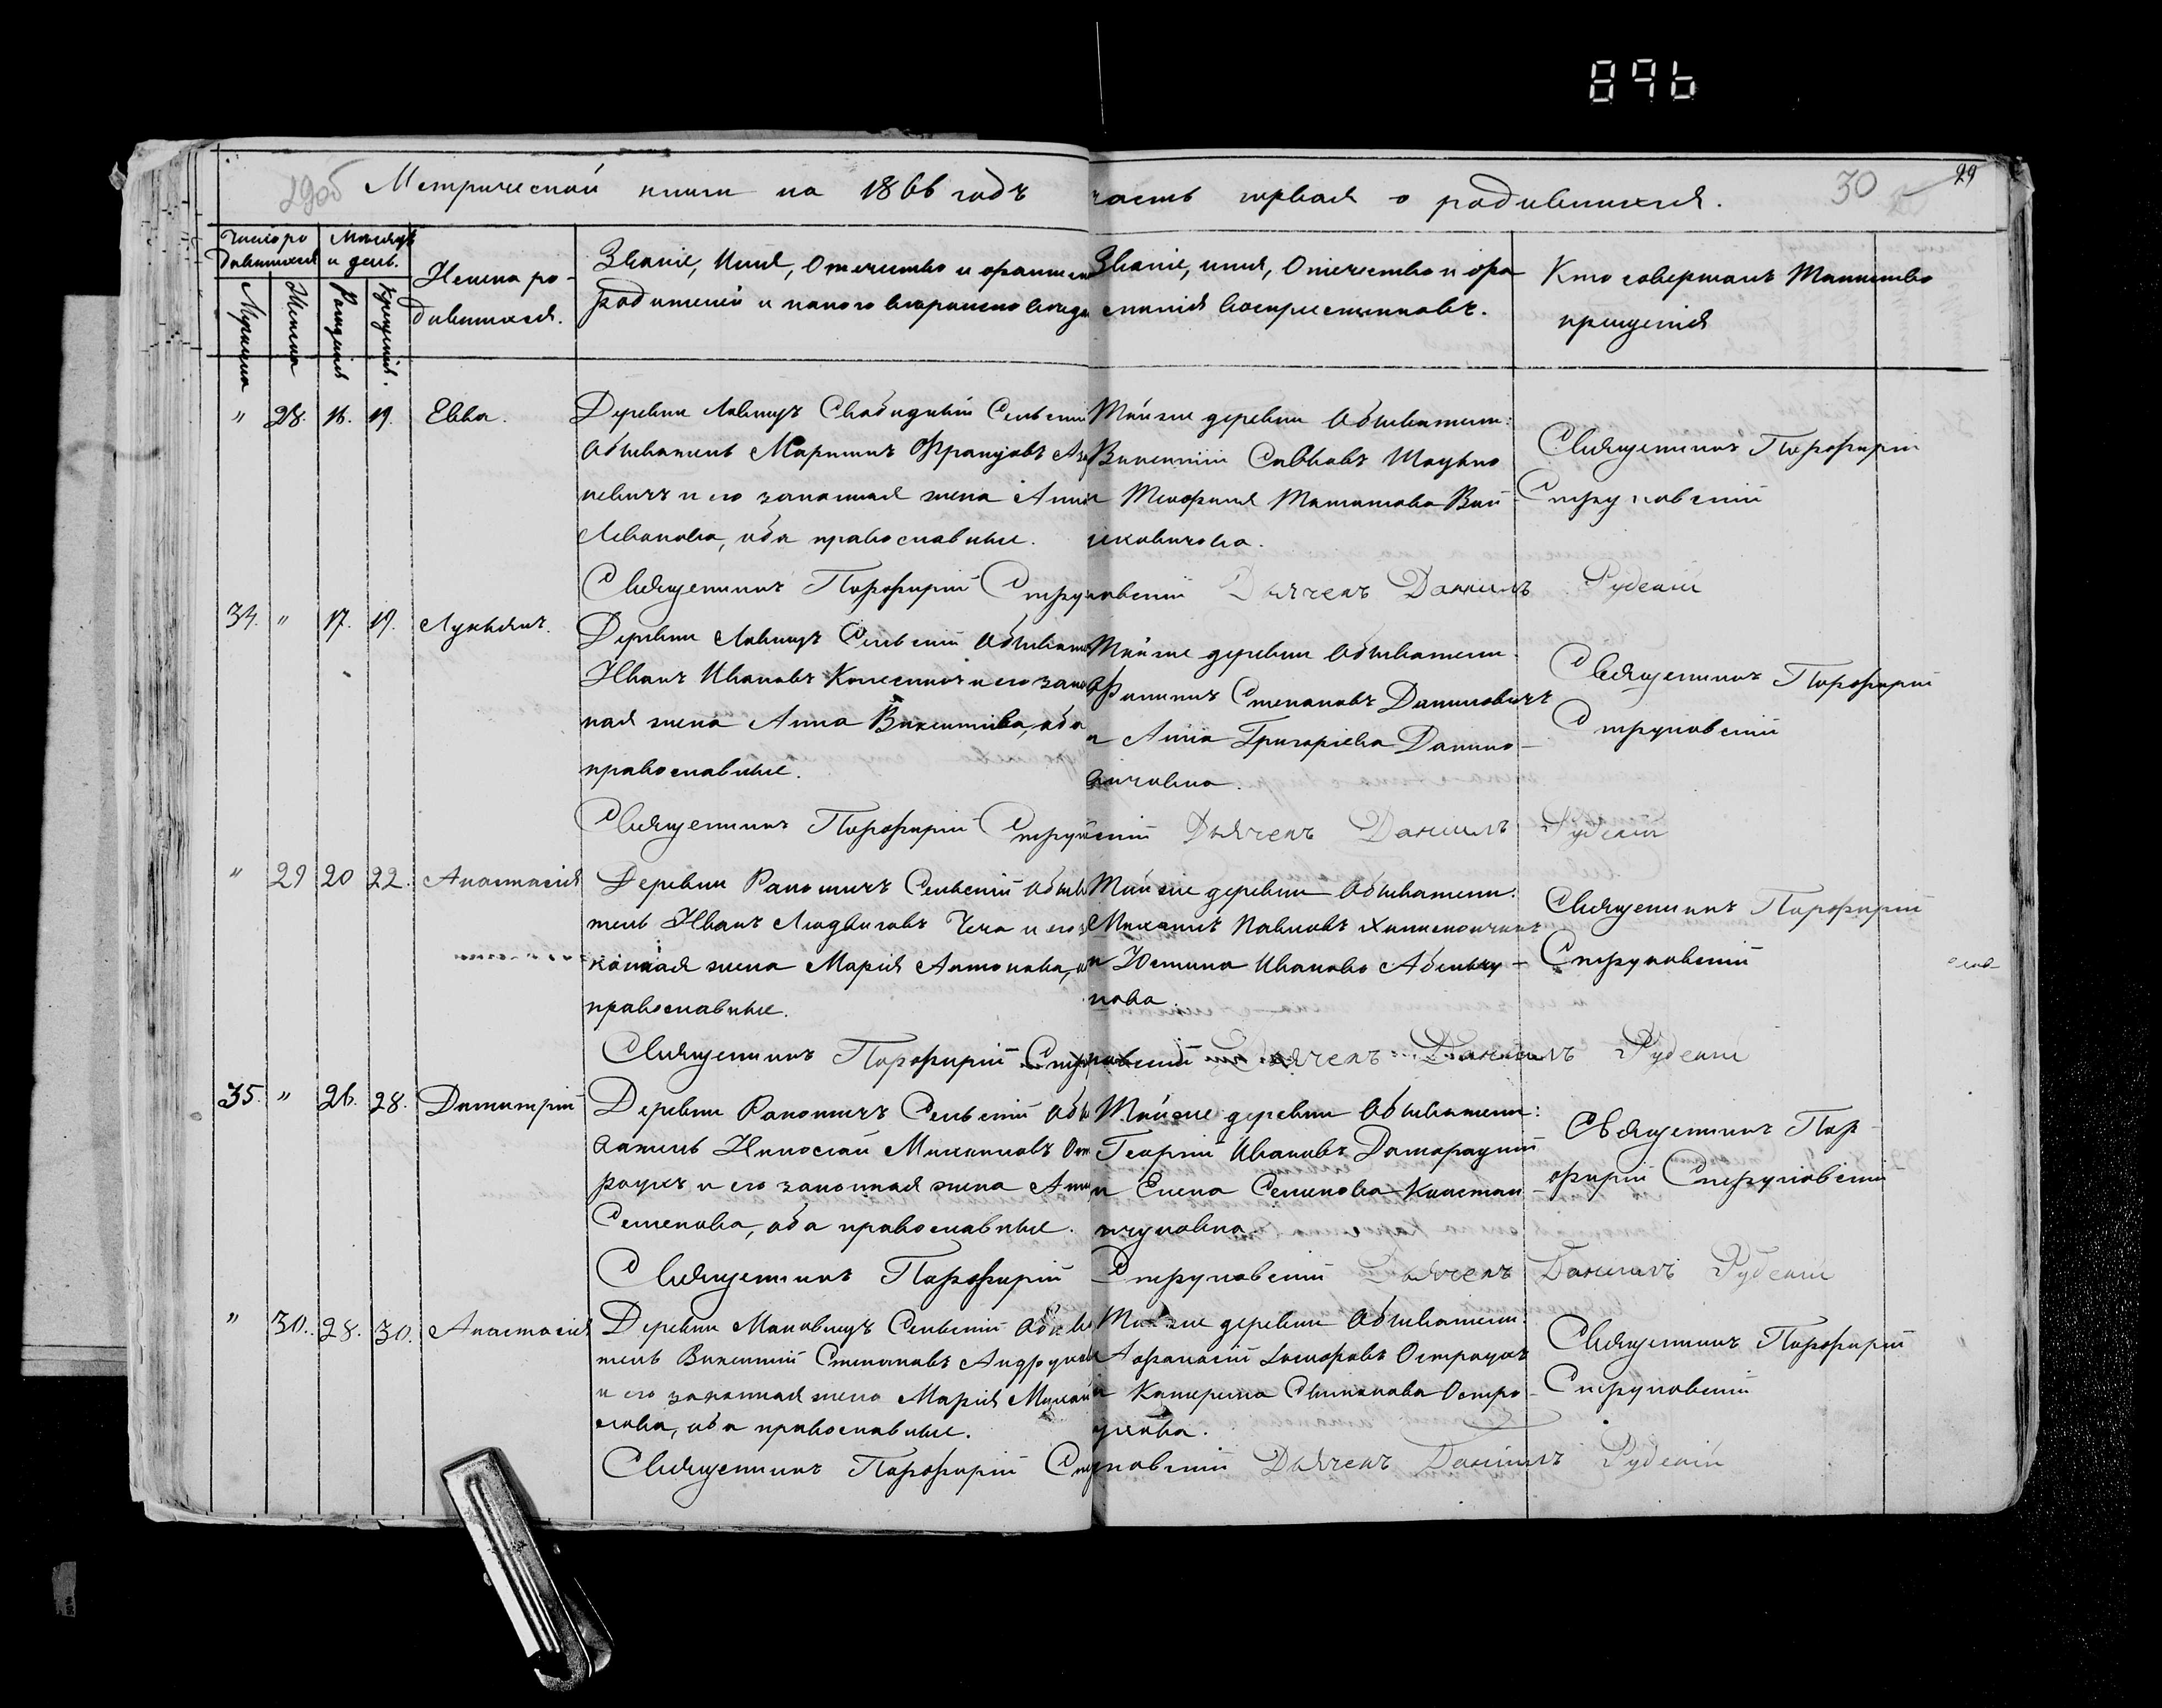 896
29об Метрической книги на 1866 годъ часть первая о родившихся. 30 29
Число родившихся
Мѣсяцъ и день.
Мужеска
Женска
Рожденія
Крещенія.
Имена родившихся.
Званіе, Имя, Отечество и фамилія
родителей и какого вѣроисповѣд
Званіе, имя, Отечество и фа
милія воспріемниковъ.
Кто совершалъ Таинство
крещенія
" 28. 16. 19. Евва.
Деревни Лавицъ Свободный Сельскій
Обыватель Мартинъ Францовъ
кевичъ и его законная жена Анна
Леванова, оба православные.
Тойже деревни Обыватели:
Викентій Савковъ
и Теофиля
Священникъ Порфирій
Струковскій
Священникъ Порфирій Струковскій Дьячекъ Даніилъ Рудскій
34. " 17. 19. Лукьянъ.
Деревни Лавицъ Сельскій Обывате
Иванъ Ивановъ Колесникъ и его закон
ная жена Анна Викентіева, оба
православные.
Тойже деревни Обыватели
Филипъ Степановъ Даниловичъ
и Анна Григоріева Данило-
вичовна.
Священникъ Порфирій
Струковскій
Священникъ Порфирій Струковскій Дьячекъ Даніилъ Рудскій
" 29 20 22. Анастасія
Деревни Ракомичъ Сельскій Обыва
тель Иванъ Людвиговъ и его за
конная жена Марія Антонова, оба
православные.
Тойже деревни Обыватели:
Михаилъ Павловъ
и Юстина Иванова
Священникъ Порфирій
Струковскій
Священникъ Порфирій Струковскій Дьячекъ Даніилъ Рудскій
35. " 26. 28. Димитрій
Деревни Ракомичъ Сельскій Обы
ватель Николай Ост
роухъ и его законная жена Анна
Семенова, оба православные.
Тойже деревни Обыватели:
Георгій Ивановъ Доморацкій
и Елена Семенова
Священникъ Пор-
фирій Струковскій
Священникъ Порфирій Струковскій Дьячекъ Даніилъ Рудскій
" 30. 28. 30. Анастасія
Деревни Маковицъ Сельскій Обыва
тель Викентій Степановъ
и его законная жена Марія Михай
лова, оба православные.
Тойже деревни Обыватели:
Афанасій Остроухъ
и Катерина Остро-
ухова.
Священникъ Порфирій
Струковскій
Священникъ Порфирій Струковскій Дьячекъ Даніилъ Рудскій